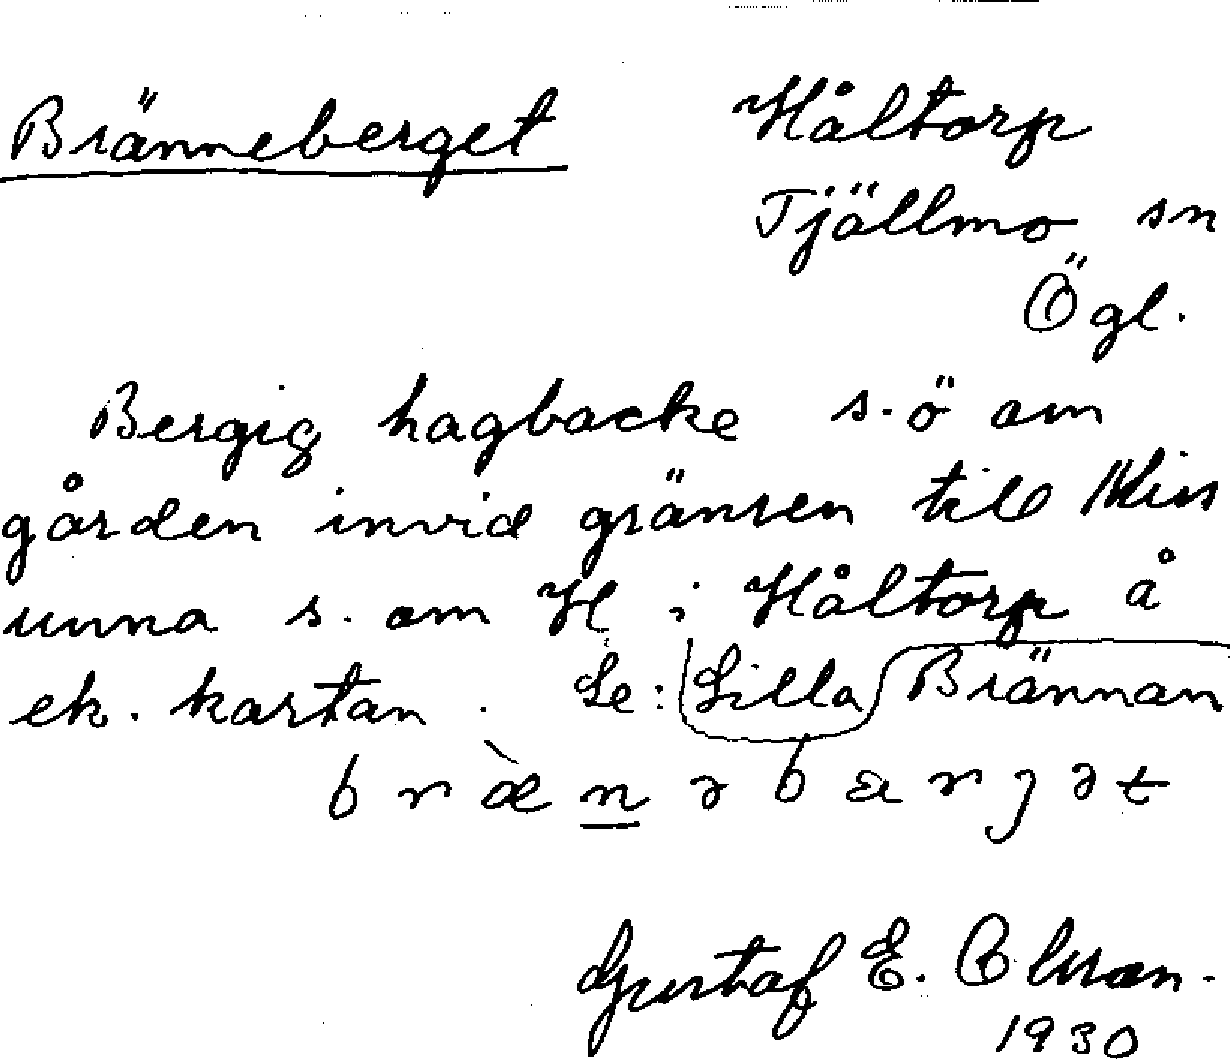 Bränneberget
Håltorp
Tjällmo sn
Ögl.
Bergig hagbacke s.ö om
gården invid gränsen till
unna s. om H i Håltorp å
ek. kartan. Se: Lilla Brännan
b r æ̀ n ə b a r j ə t
Gustaf E. Olsson.
1930